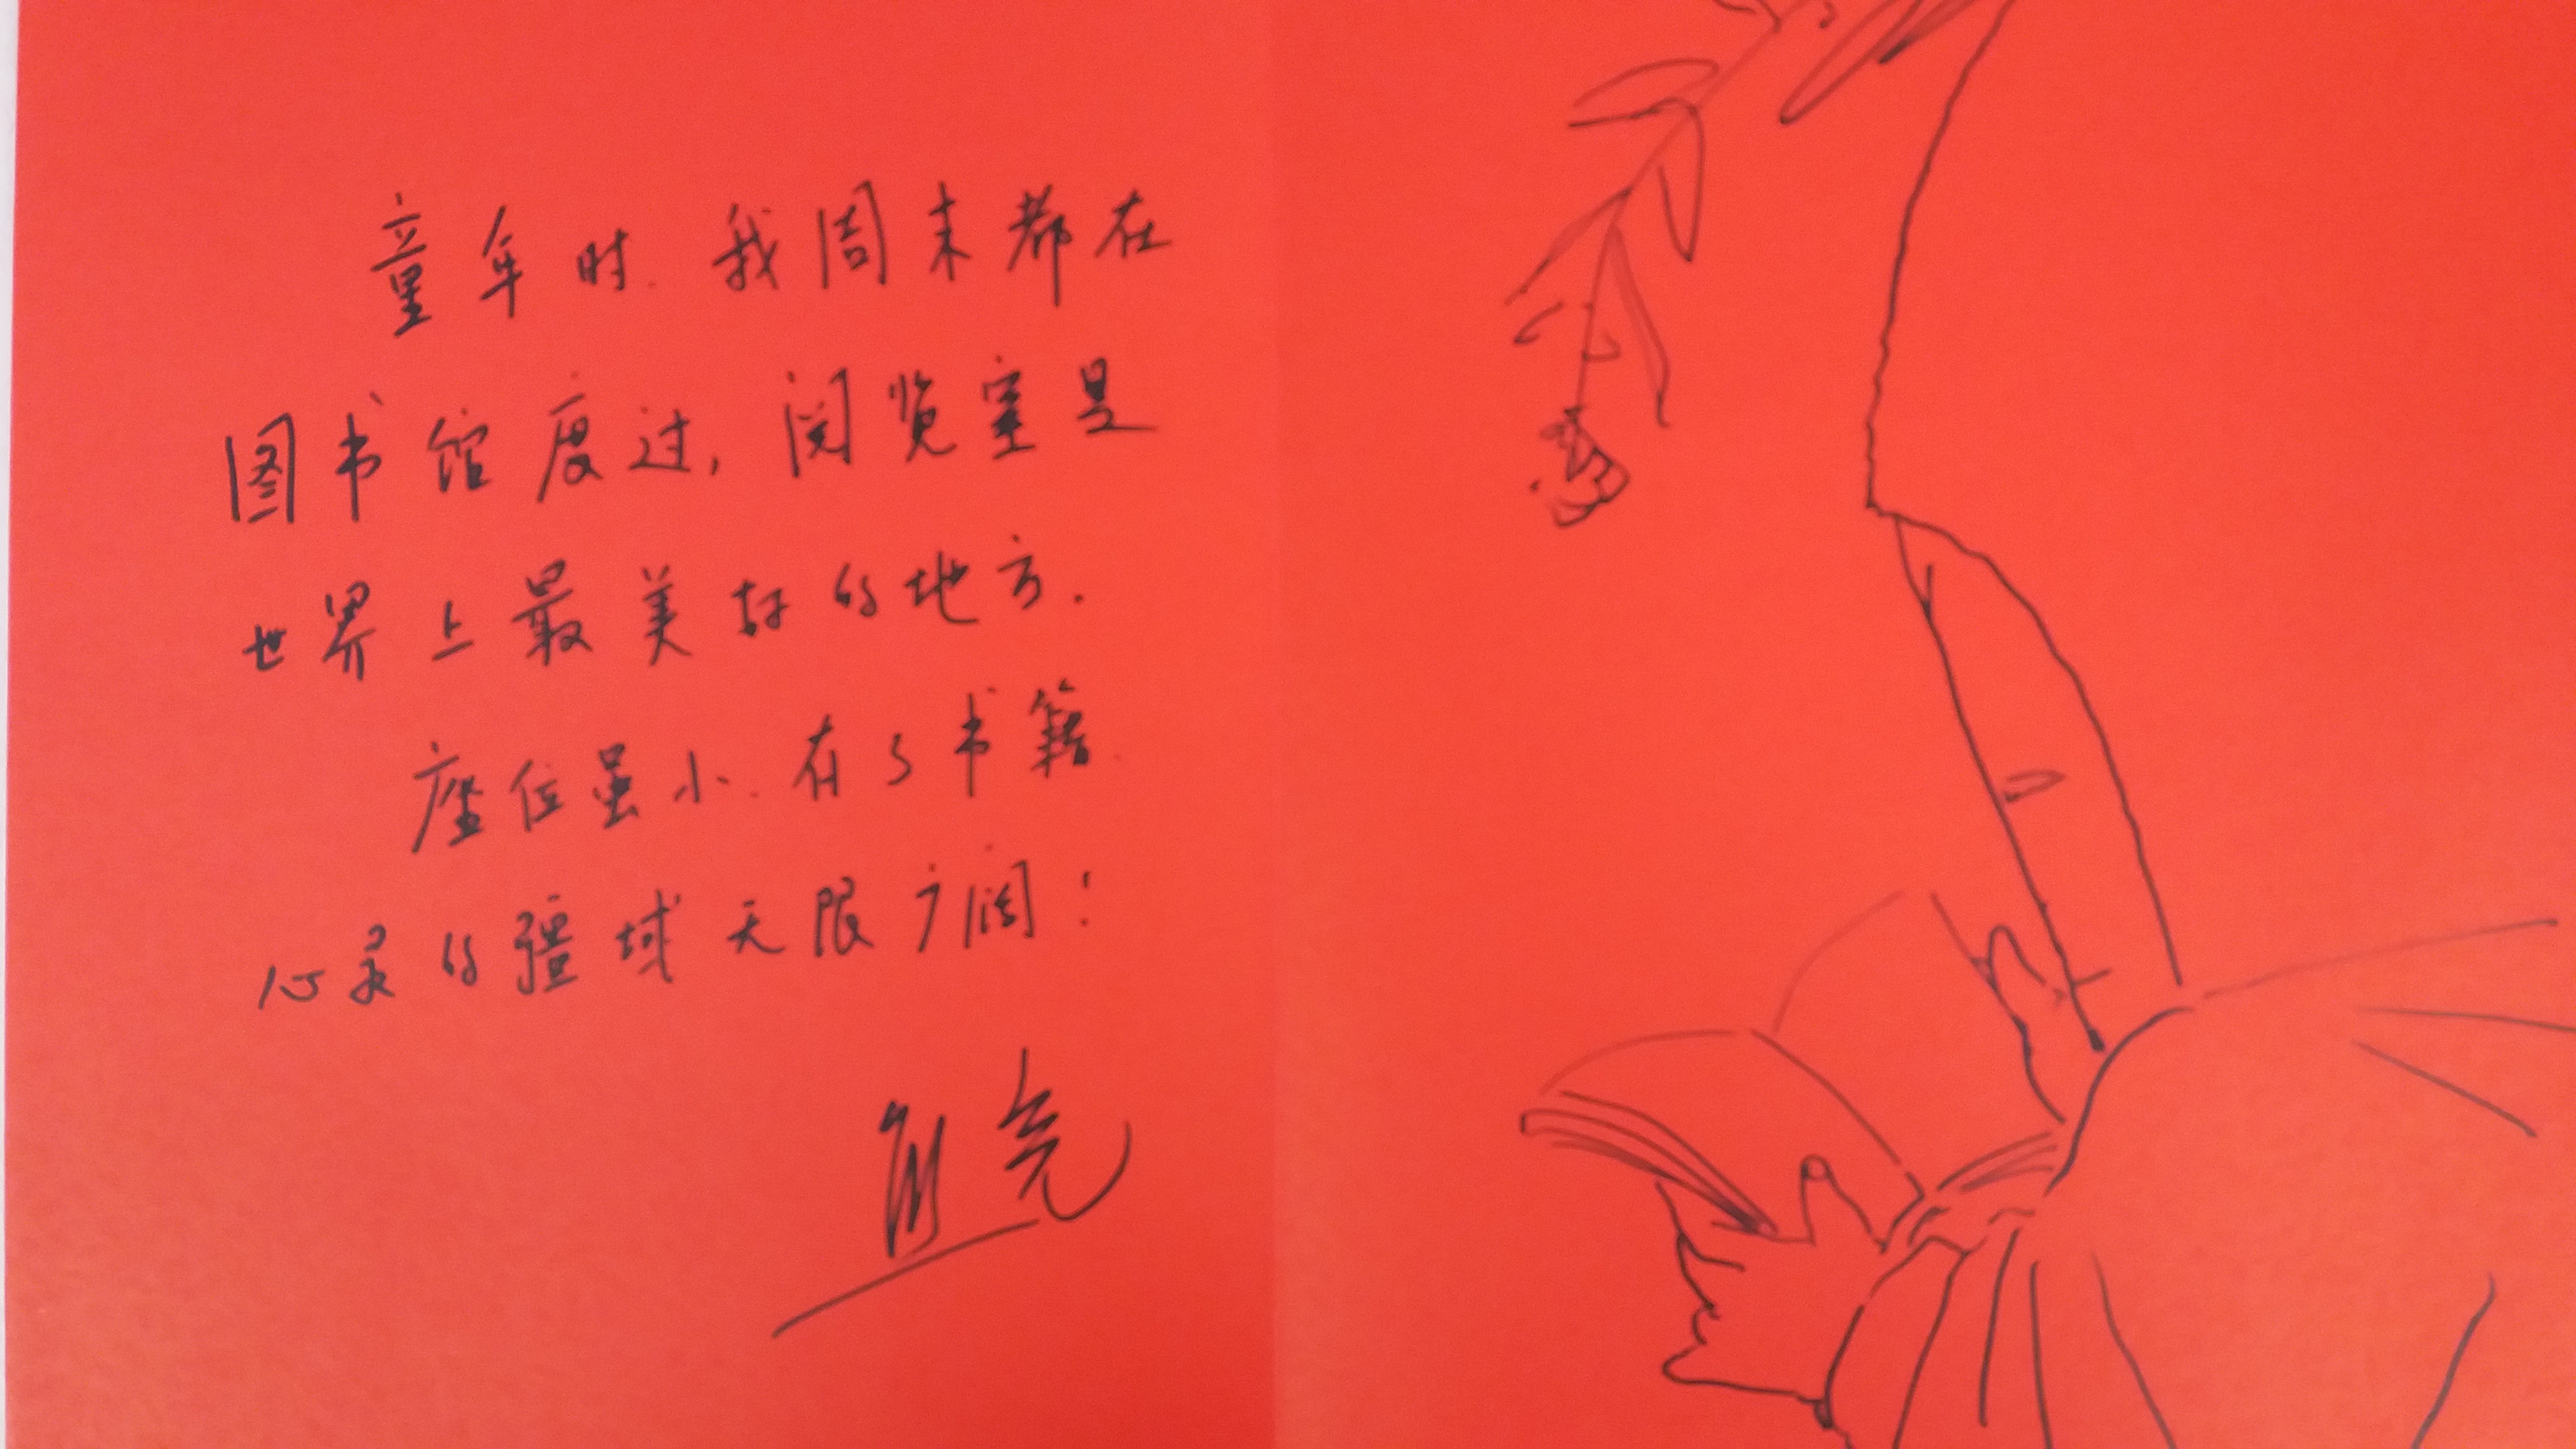 童年时.我周末都在
图书馆度过,阅览室是
世界上最美好的地方.
座位虽小.有了书籍.
心灵的疆域无限广阔!